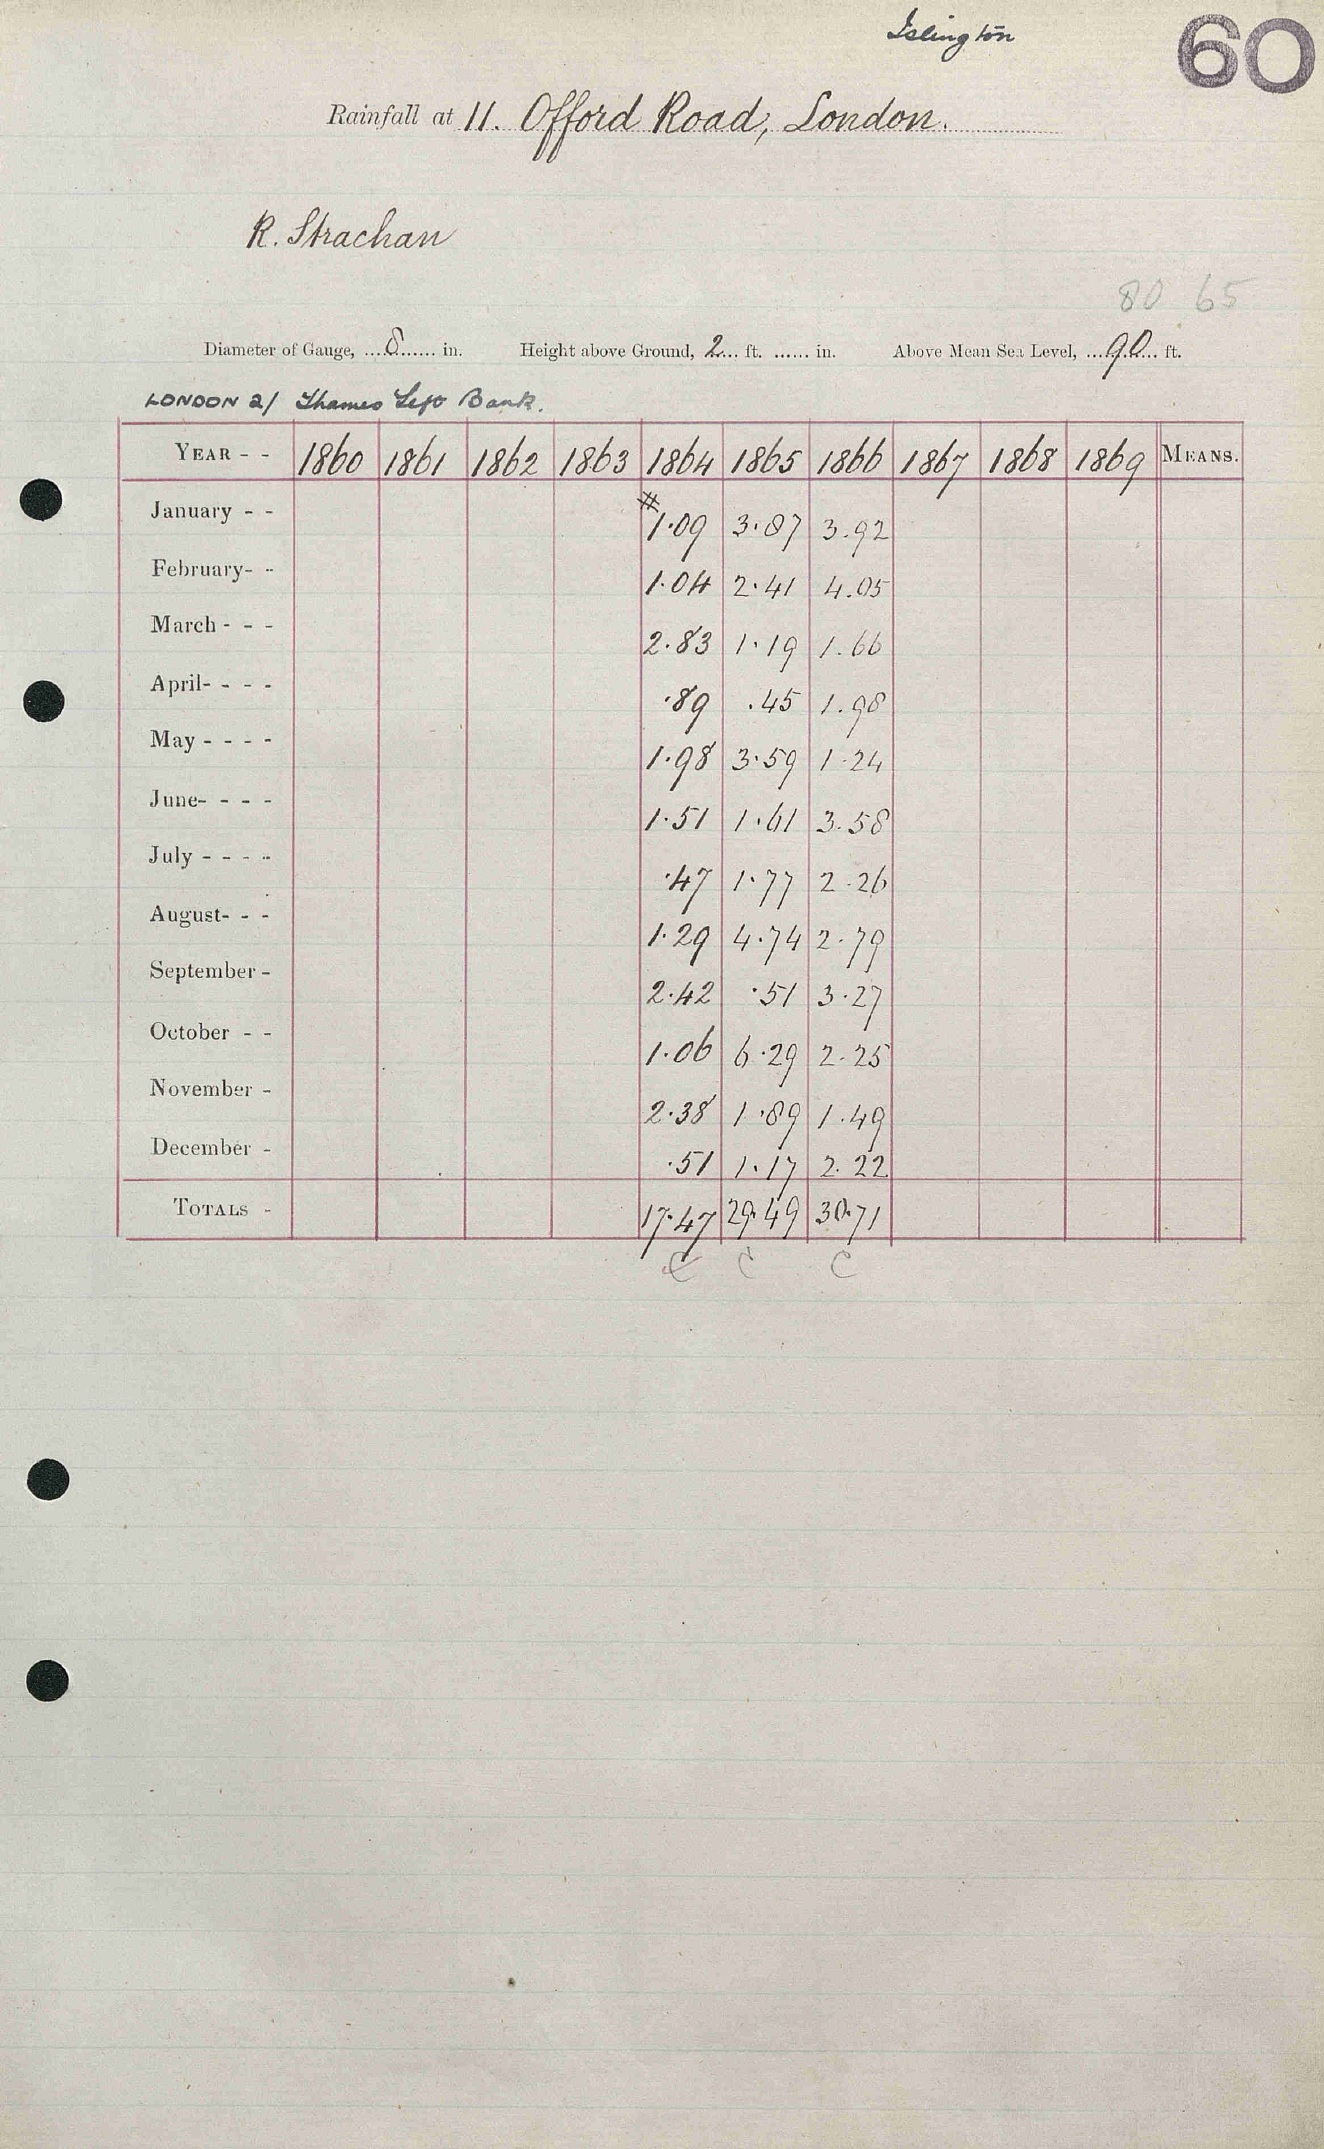 Islington
60
Rainfall at 11. Offord Road, London.
R. Strachan
80 65
Diameter of Gauge, ....8...... in. Height above Ground, 2.... ft. ...... in. Above Mean Sea Level, ...90.... ft.
LONDON 2/ Thames Left Bank.
YEAR - - 1860 1861 1862 1863 1864 1865 1866 1867 1868 1869 MEANS.
January - - # 1.09 3.87 3.92
February- - 1.04 2.41 4.05
March - - - 2.83 1.19 1.66
April- - - - .89 .45 1.98
May - - - - 1.98 3.59 1.24
June- - - - 1.51 1.61 3.58
July - - - - .47 1.77 2.26
August- - - 1.29 4.74 2.79
September - 2.42 .51 3.27
October - - 1.06 6.29 2.25
November - 2.38 1.89 1.49
December - .51 1.17 2.22
TOTALS - 17.47 29.49 30.71
C C C